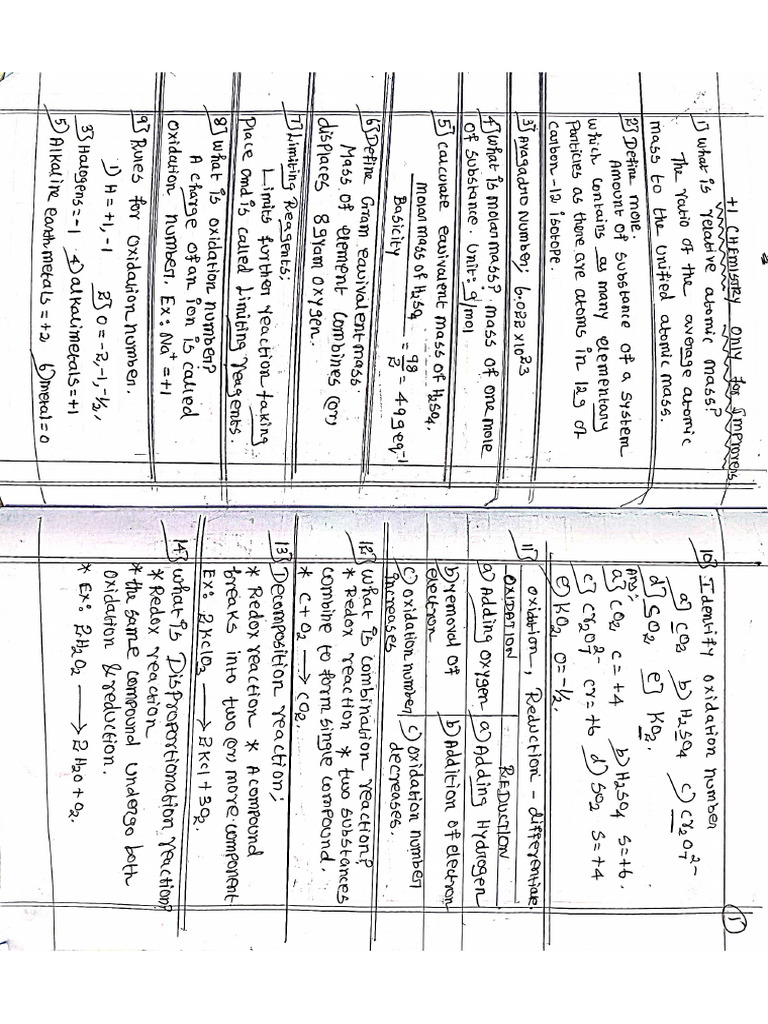 +1 CHEMISTRY ONLY for Improvers
1) What is relative atomic mass?
The ratio of the average atomic
mass to the unified atomic mass.
2) Define mole.
Amount of substance of a system
which contains as many elementary
Particles as there are atoms in 12g of
carbon-12 isotope.
3) Avagadro Number; 6.022x10^23
4) What is molar mass? mass of one mole
of substance. Unit: g/mol
5) calculate equivalent mass of H2SO4.
molar mass of H2SO4 / Basicity = 98/2 = 49 g eq-1
6) Define Gram equivalent mass.
Mass of element combines (or)
displaces 8 gram oxygen.
7) Limiting Reagents;
Limits further reaction taking
Place and is called Limiting reagents.
8) What is oxidation number?
A charge of an ion is called
oxidation number. Ex: Na+ = +1
9) Rules for oxidation number.
1) H = +1, -1 2) O = -2, -1, -1/2,
3) Halogens = -1 4) alkalimetals = +1
5) Alkaline earth metals = +2 6) metal = 0
1
10) Identify oxidation number
a) CO2 b) H2SO4 c) Cr2O7^2-
d) SO2 e) KO2.
Ans:
a) CO2 C = +4 b) H2SO4 S = +6.
c) Cr2O7^2- Cr = +6 d) SO2 S = +4
e) KO2 O = -1/2.
11) oxidation, Reduction - differentiate.
OXIDATION REDUCTION
a) Adding oxygen a) Adding Hydrogen
b) removal of b) Addition of electron
electron
c) oxidation number c) oxidation number
increases decreases.
12) What is combination reaction?
* Redox reaction * two substances
combine to form single compound.
* C + O2 → CO2.
13) Decomposition reaction;
* Redox reaction * A compound
breaks into two (or) more component
Ex: 2KClO3 → 2KCl + 3O2.
14) What is Disproportionation reaction?
* Redox reaction
* the same compound undergo both
oxidation & reduction.
* Ex: 2H2O2 → 2H2O + O2.